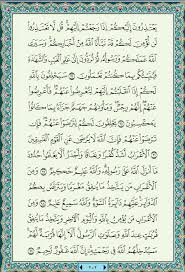 يَعْتَذِرُونَ إِلَيْكُمْ إِذَا رَجَعْتُمْ إِلَيْهِمْ قُل لَّا تَعْتَذِرُوا۟
لَن نُّؤْمِنَ لَكُمْ قَدْ نَبَّأَنَا ٱللَّهُ مِنْ أَخْبَارِكُمْ وَسَيَرَى
ٱللَّهُ عَمَلَكُمْ وَرَسُولُهُۥ ثُمَّ تُرَدُّونَ إِلَىٰ عَٰلِمِ ٱلْغَيْبِ وَٱلشَّهَٰدَةِ
فَيُنَبِّئُكُم بِمَا كُنتُمْ تَعْمَلُونَ ۝٩٤ سَيَحْلِفُونَ بِٱللَّهِ
لَكُمْ إِذَا ٱنقَلَبْتُمْ إِلَيْهِمْ لِتُعْرِضُوا۟ عَنْهُمْ فَأَعْرِضُوا۟
عَنْهُمْ إِنَّهُمْ رِجْسٌ وَمَأْوَىٰهُمْ جَهَنَّمُ جَزَآءًۢ بِمَا كَانُوا۟
يَكْسِبُونَ ۝٩٥ يَحْلِفُونَ لَكُمْ لِتَرْضَوْا۟ عَنْهُمْ فَإِن
تَرْضَوْا۟ عَنْهُمْ فَإِنَّ ٱللَّهَ لَا يَرْضَىٰ عَنِ ٱلْقَوْمِ ٱلْفَٰسِقِينَ ۝٩٦
ٱلْأَعْرَابُ أَشَدُّ كُفْرًا وَنِفَاقًا وَأَجْدَرُ أَلَّا يَعْلَمُوا۟ حُدُودَ
مَآ أَنزَلَ ٱللَّهُ عَلَىٰ رَسُولِهِۦ وَٱللَّهُ عَلِيمٌ حَكِيمٌ ۝٩٧ وَمِنَ
ٱلْأَعْرَابِ مَن يَتَّخِذُ مَا يُنفِقُ مَغْرَمًا وَيَتَرَبَّصُ بِكُمُ
ٱلدَّوَآئِرَ عَلَيْهِمْ دَآئِرَةُ ٱلسَّوْءِ وَٱللَّهُ سَمِيعٌ عَلِيمٌ ۝٩٨ وَمِنَ
ٱلْأَعْرَابِ مَن يُؤْمِنُ بِٱللَّهِ وَٱلْيَوْمِ ٱلْءَاخِرِ وَيَتَّخِذُ مَا يُنفِقُ
قُرُبَٰتٍ عِندَ ٱللَّهِ وَصَلَوَٰتِ ٱلرَّسُولِ أَلَآ إِنَّهَا قُرْبَةٌ لَّهُمْ
سَيُدْخِلُهُمُ ٱللَّهُ فِى رَحْمَتِهِۦٓ إِنَّ ٱللَّهَ غَفُورٌ رَّحِيمٌ ۝٩٩
٢٠٢